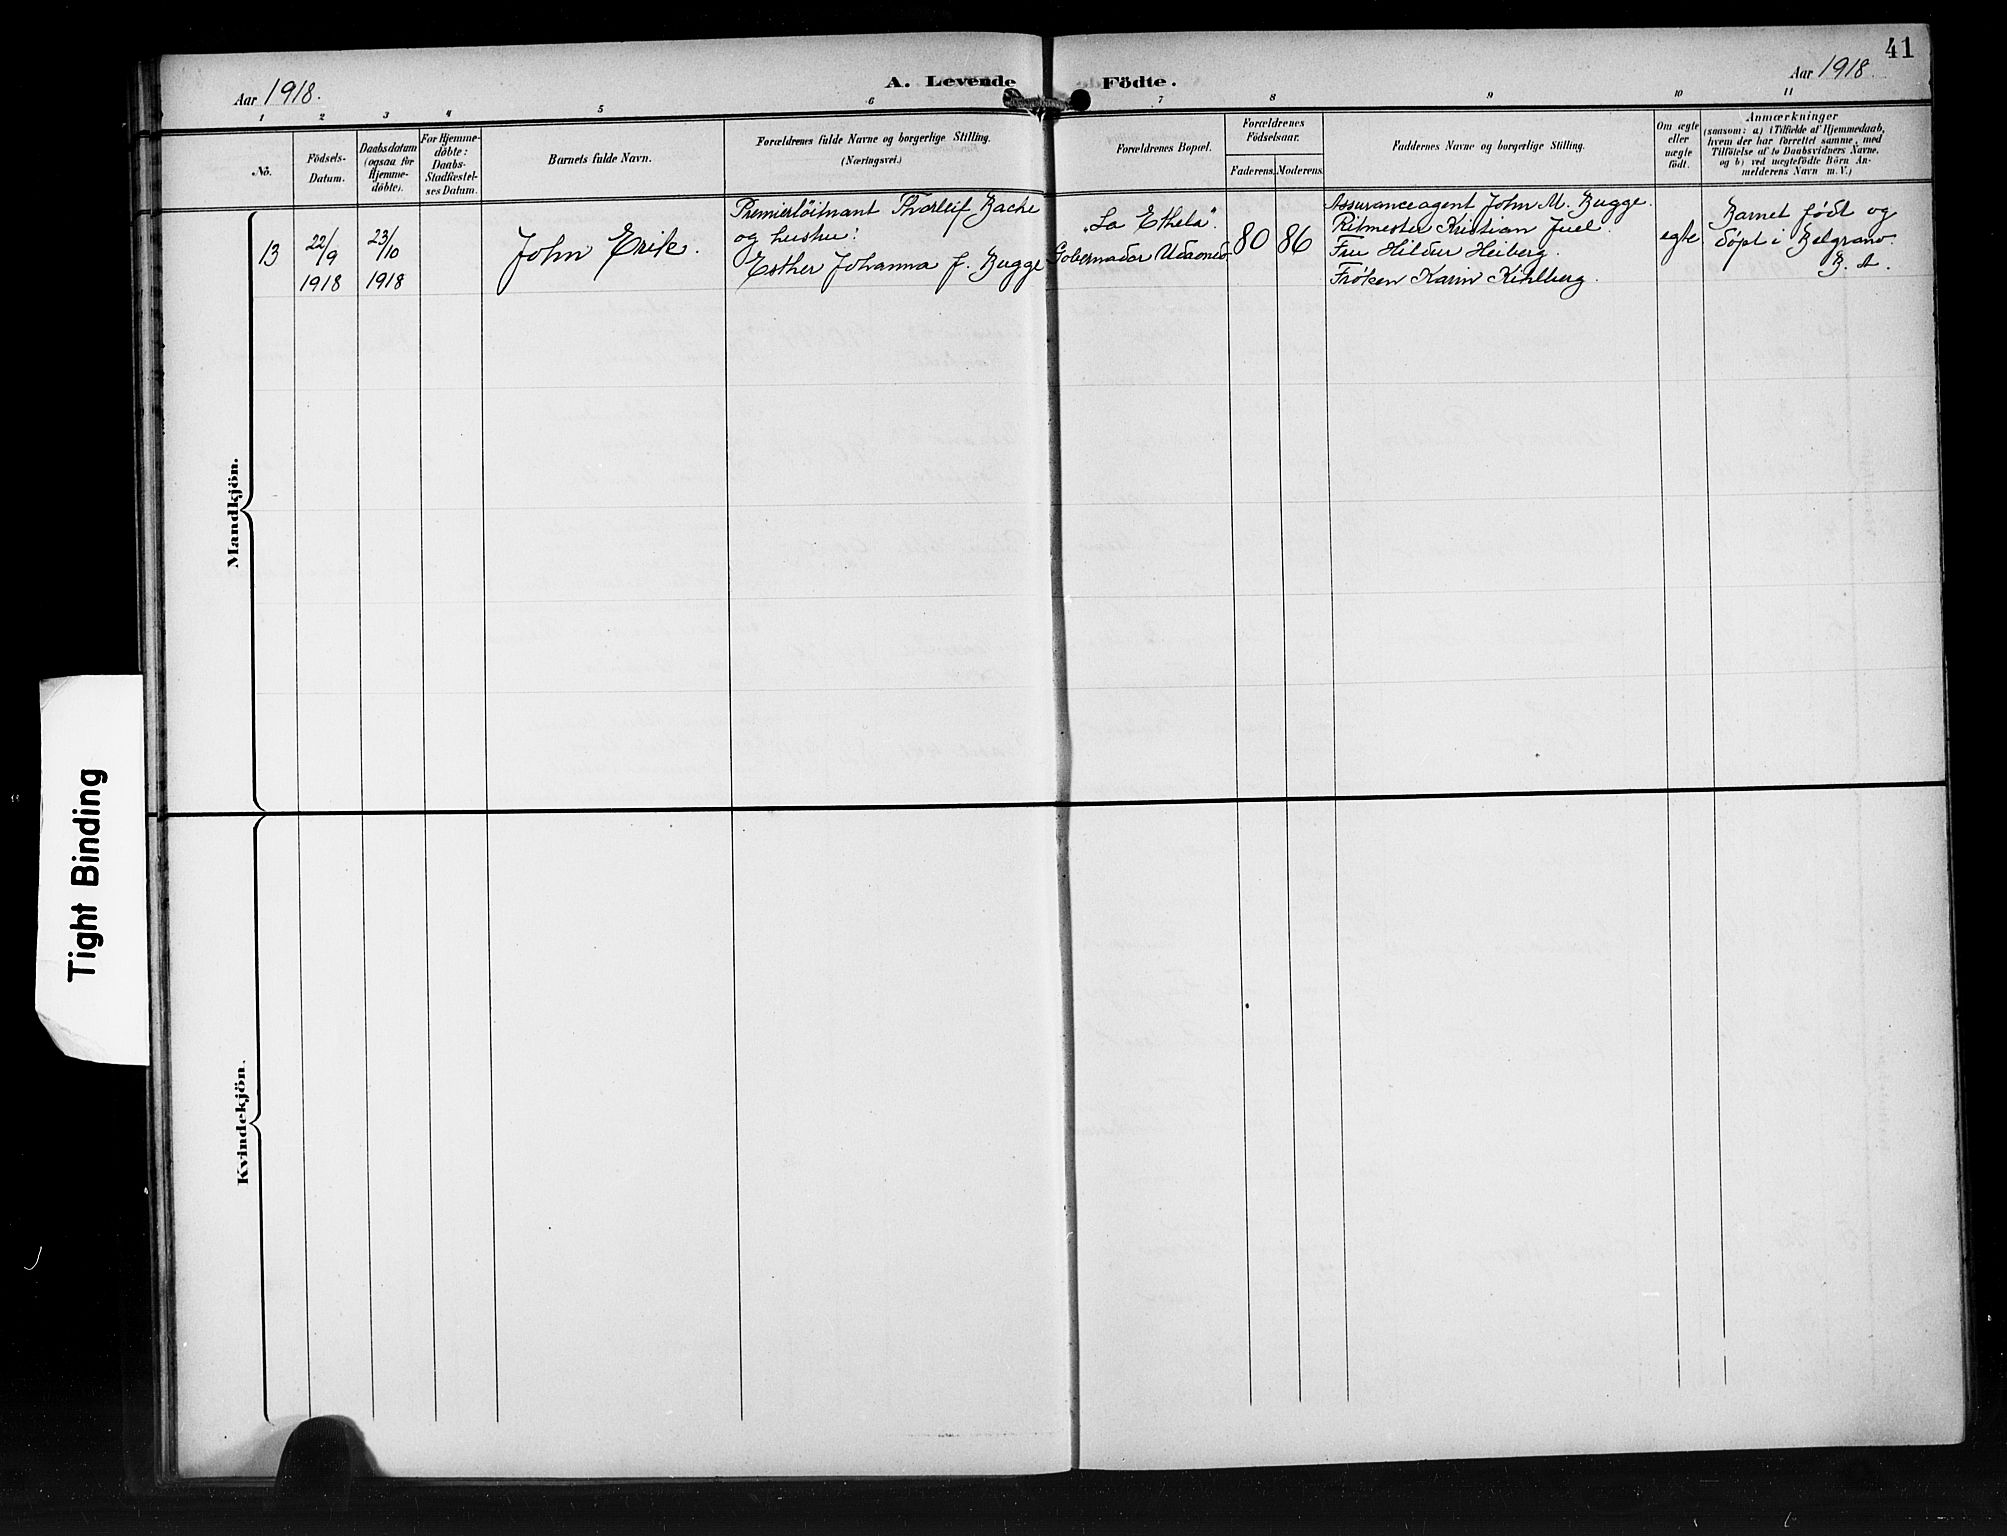 41
A. Levende Födte.
Aar 1918.
Aar 1918.
1 2 3 4 5 6 7 8 9 10 11
No.
Födsels-
Datum.
Daabsdatum
(ogsaa for
Hjemme-
döbte).
For Hjemme-
döbte:
Daabs-
Stadfæstel-
ses Datum.
Barnets fulde Navn.
Forældrenes fulde Navne og borgerlige Stilling.
(Næringsvei.)
Forældrenes Bopæl.
Forældrenes
Födselsaar.
Faderens. Moderens.
Faddernes Navne og borgerlige Stilling.
Om ægte
eller
uægte
födt.
Anmærkninger
(saasom: a) i Tilfælde af Hjemmedaab,
hvem der har forrettet samme, med
Tilföielse af to Daabsvidners Navne,
og b) ved uægtefödte Börn An-
melderens Navn m. V.)
Mandkjön.
13
22/9
1918
23/10
1918
John Erik.
Premierløitnant Thorleif Bache
og hustru:
Esther Johanna f. Bugge
"La Ethela".
Gobernador Udaondo
80
86
Assuranceagent John M. Bugge.
Ritmester Kristian Juel.
Fru Hildur Heiberg.
Frøken Karin Kihlberg.
egte
Barnet født og
døpt i Belgrano.
B. A.
Kvindekjön.
Tight Binding